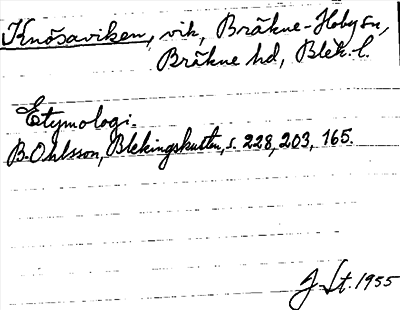 Knösaviken, vik, Bräkne-Hoby sn,
Bräkne hd, Blek. l.
Etymologi.
B. Ohlsson, Blekingskusten, s. 228, 203, 165.
J-St. 1955